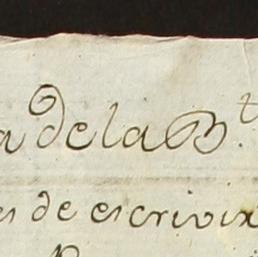 a de la B.t
es de escrivix